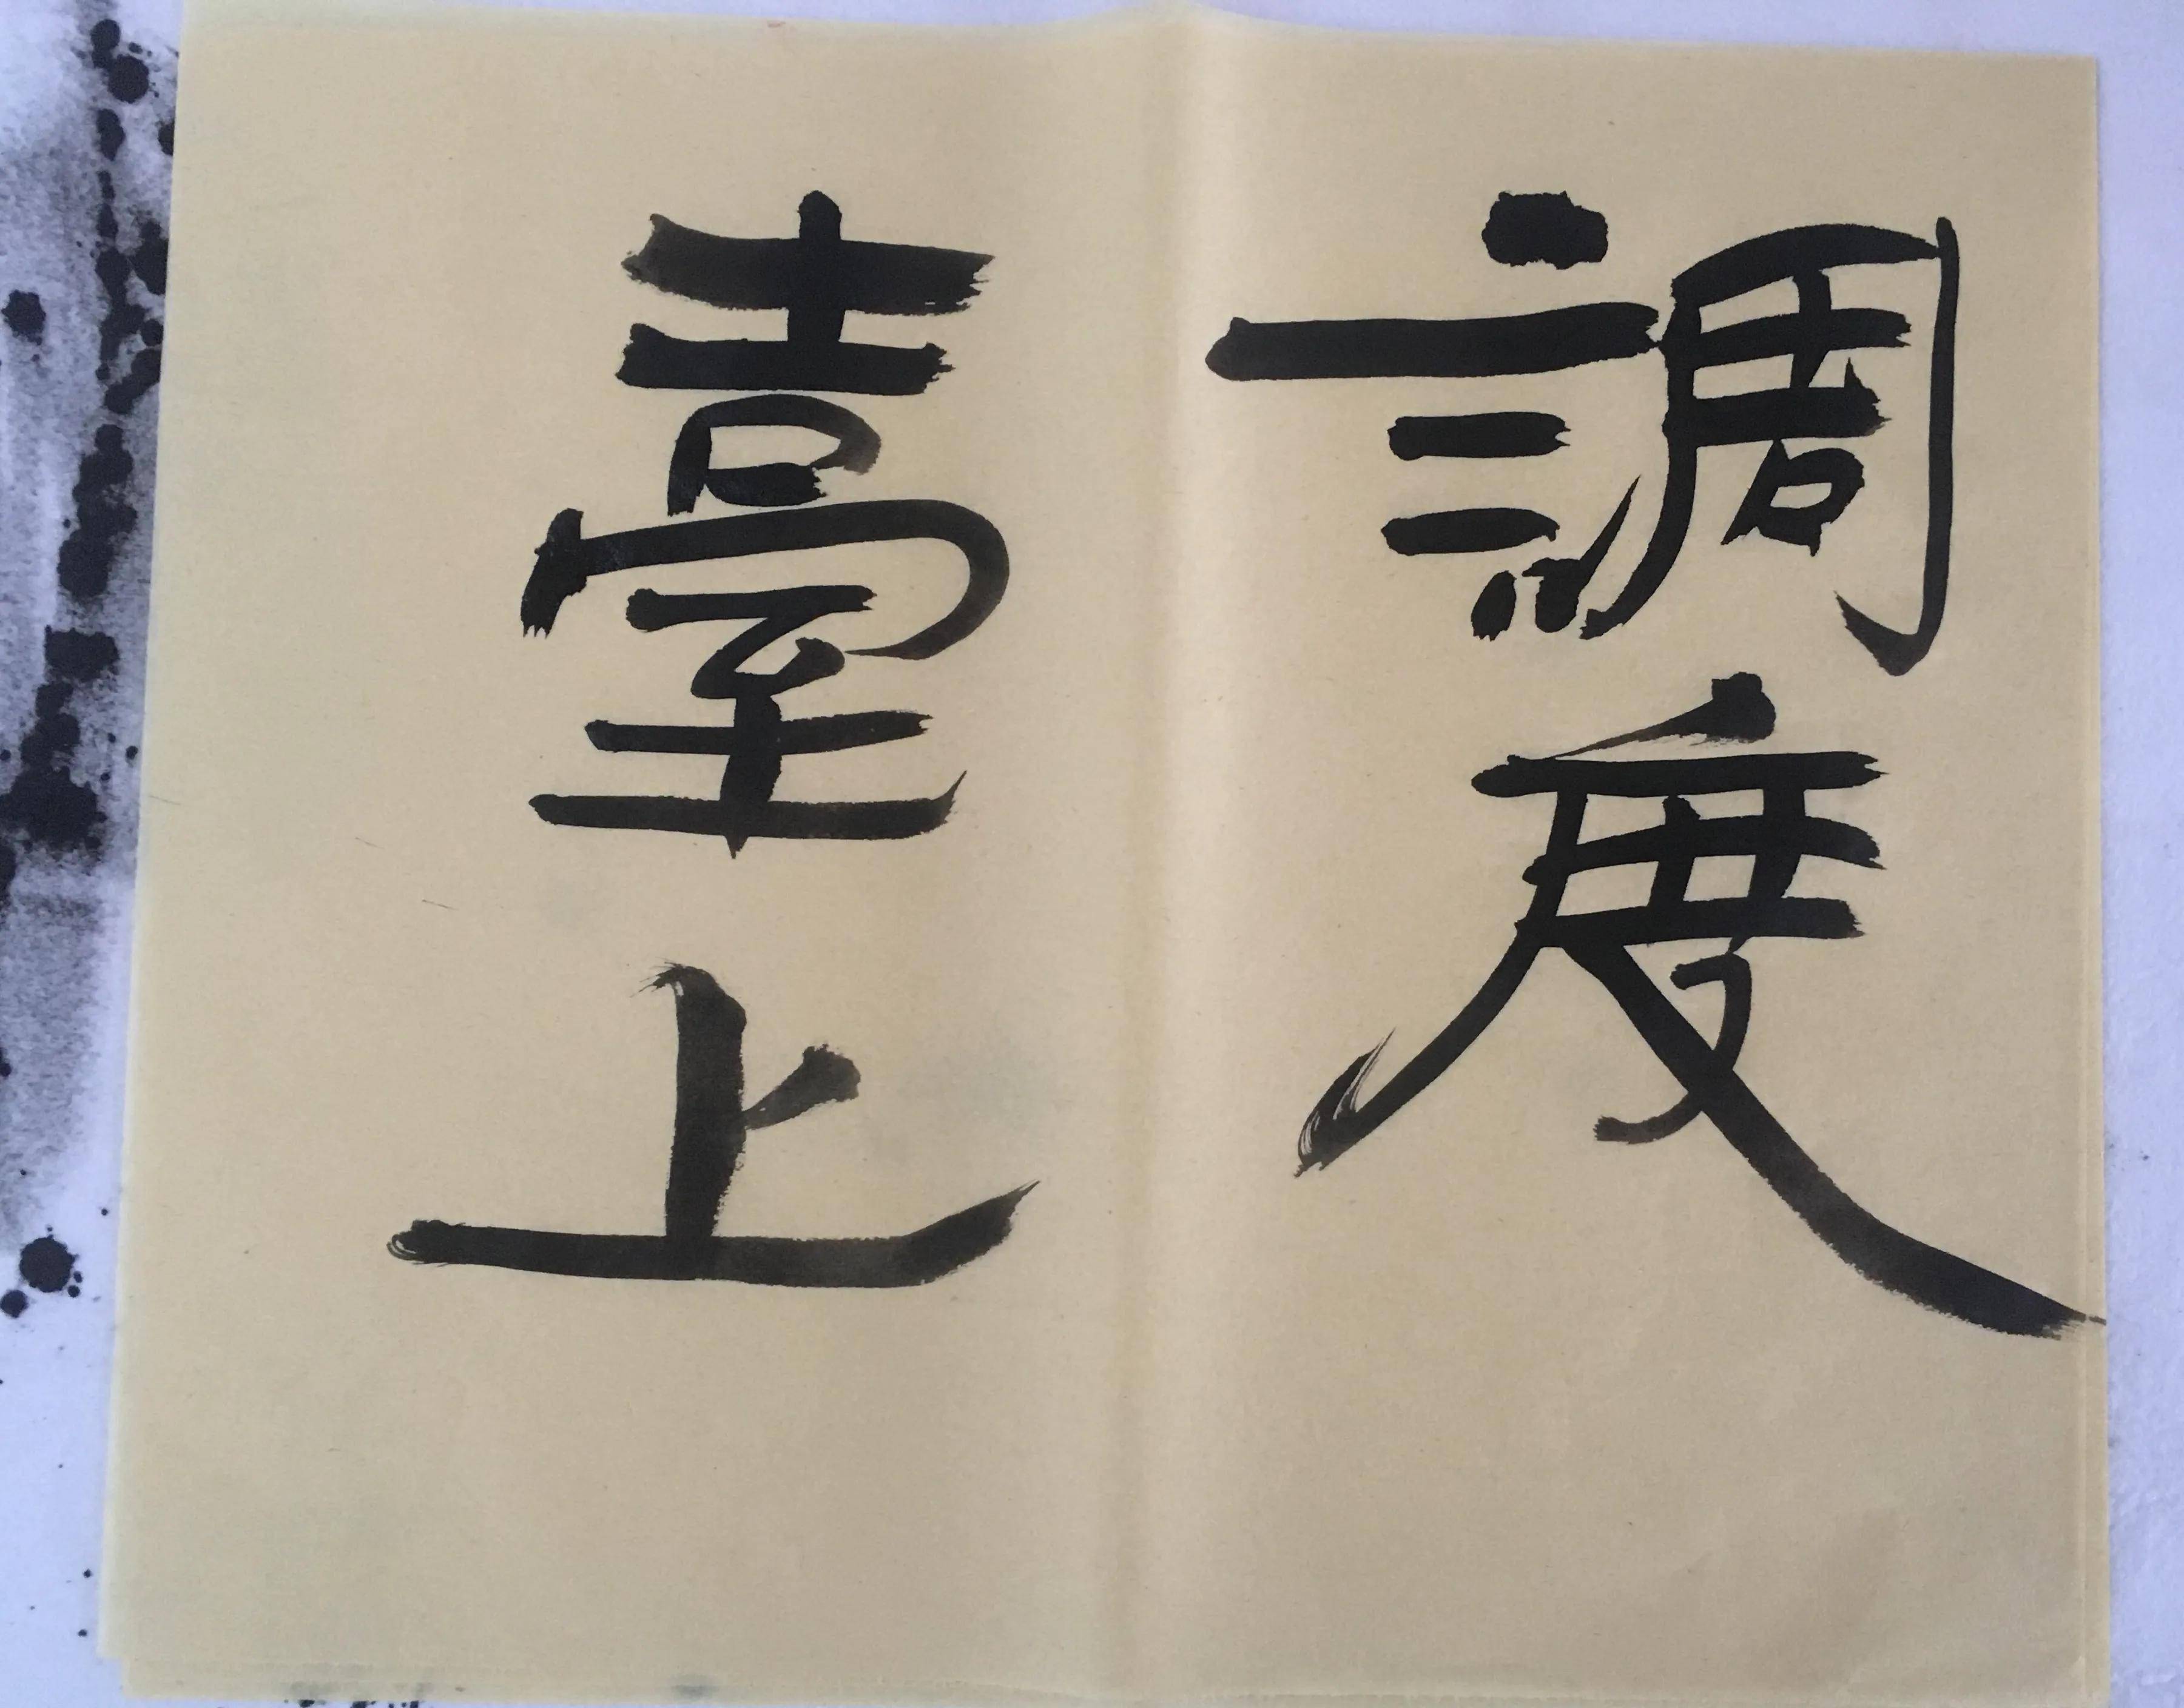 調度
臺上